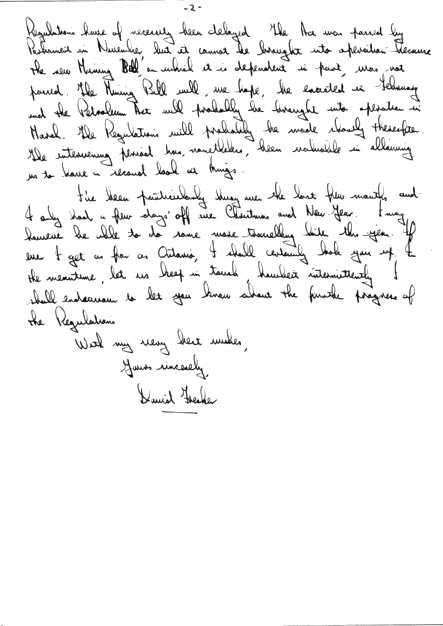 -2-
Regulations have of necessity been delayed. The Act was passed by
Parliament in November but it cannot be brought into operation because
the new Mining Bill, on which it is dependent in part, was not
passed. The Mining Bill will, we hope, be enacted in February
and the Petroleum Act will probably be brought into operation in
March. The Regulations will probably be made shortly thereafter.
The intervening period has, nonetheless, been valuable in allowing
us to have a second look at things.
I've been particularly busy over the last few months and
I only had a few days' off over Christmas and New Year. I may
however be able to do some more travelling later this year. If
ever I get as far as Ontario, I shall certainly look you up. In
the meantime, let us keep in touch, however intermittently. I
shall endeavour to let you know about the further progress of
the Regulations
With my very best wishes,
Yours sincerely,
David